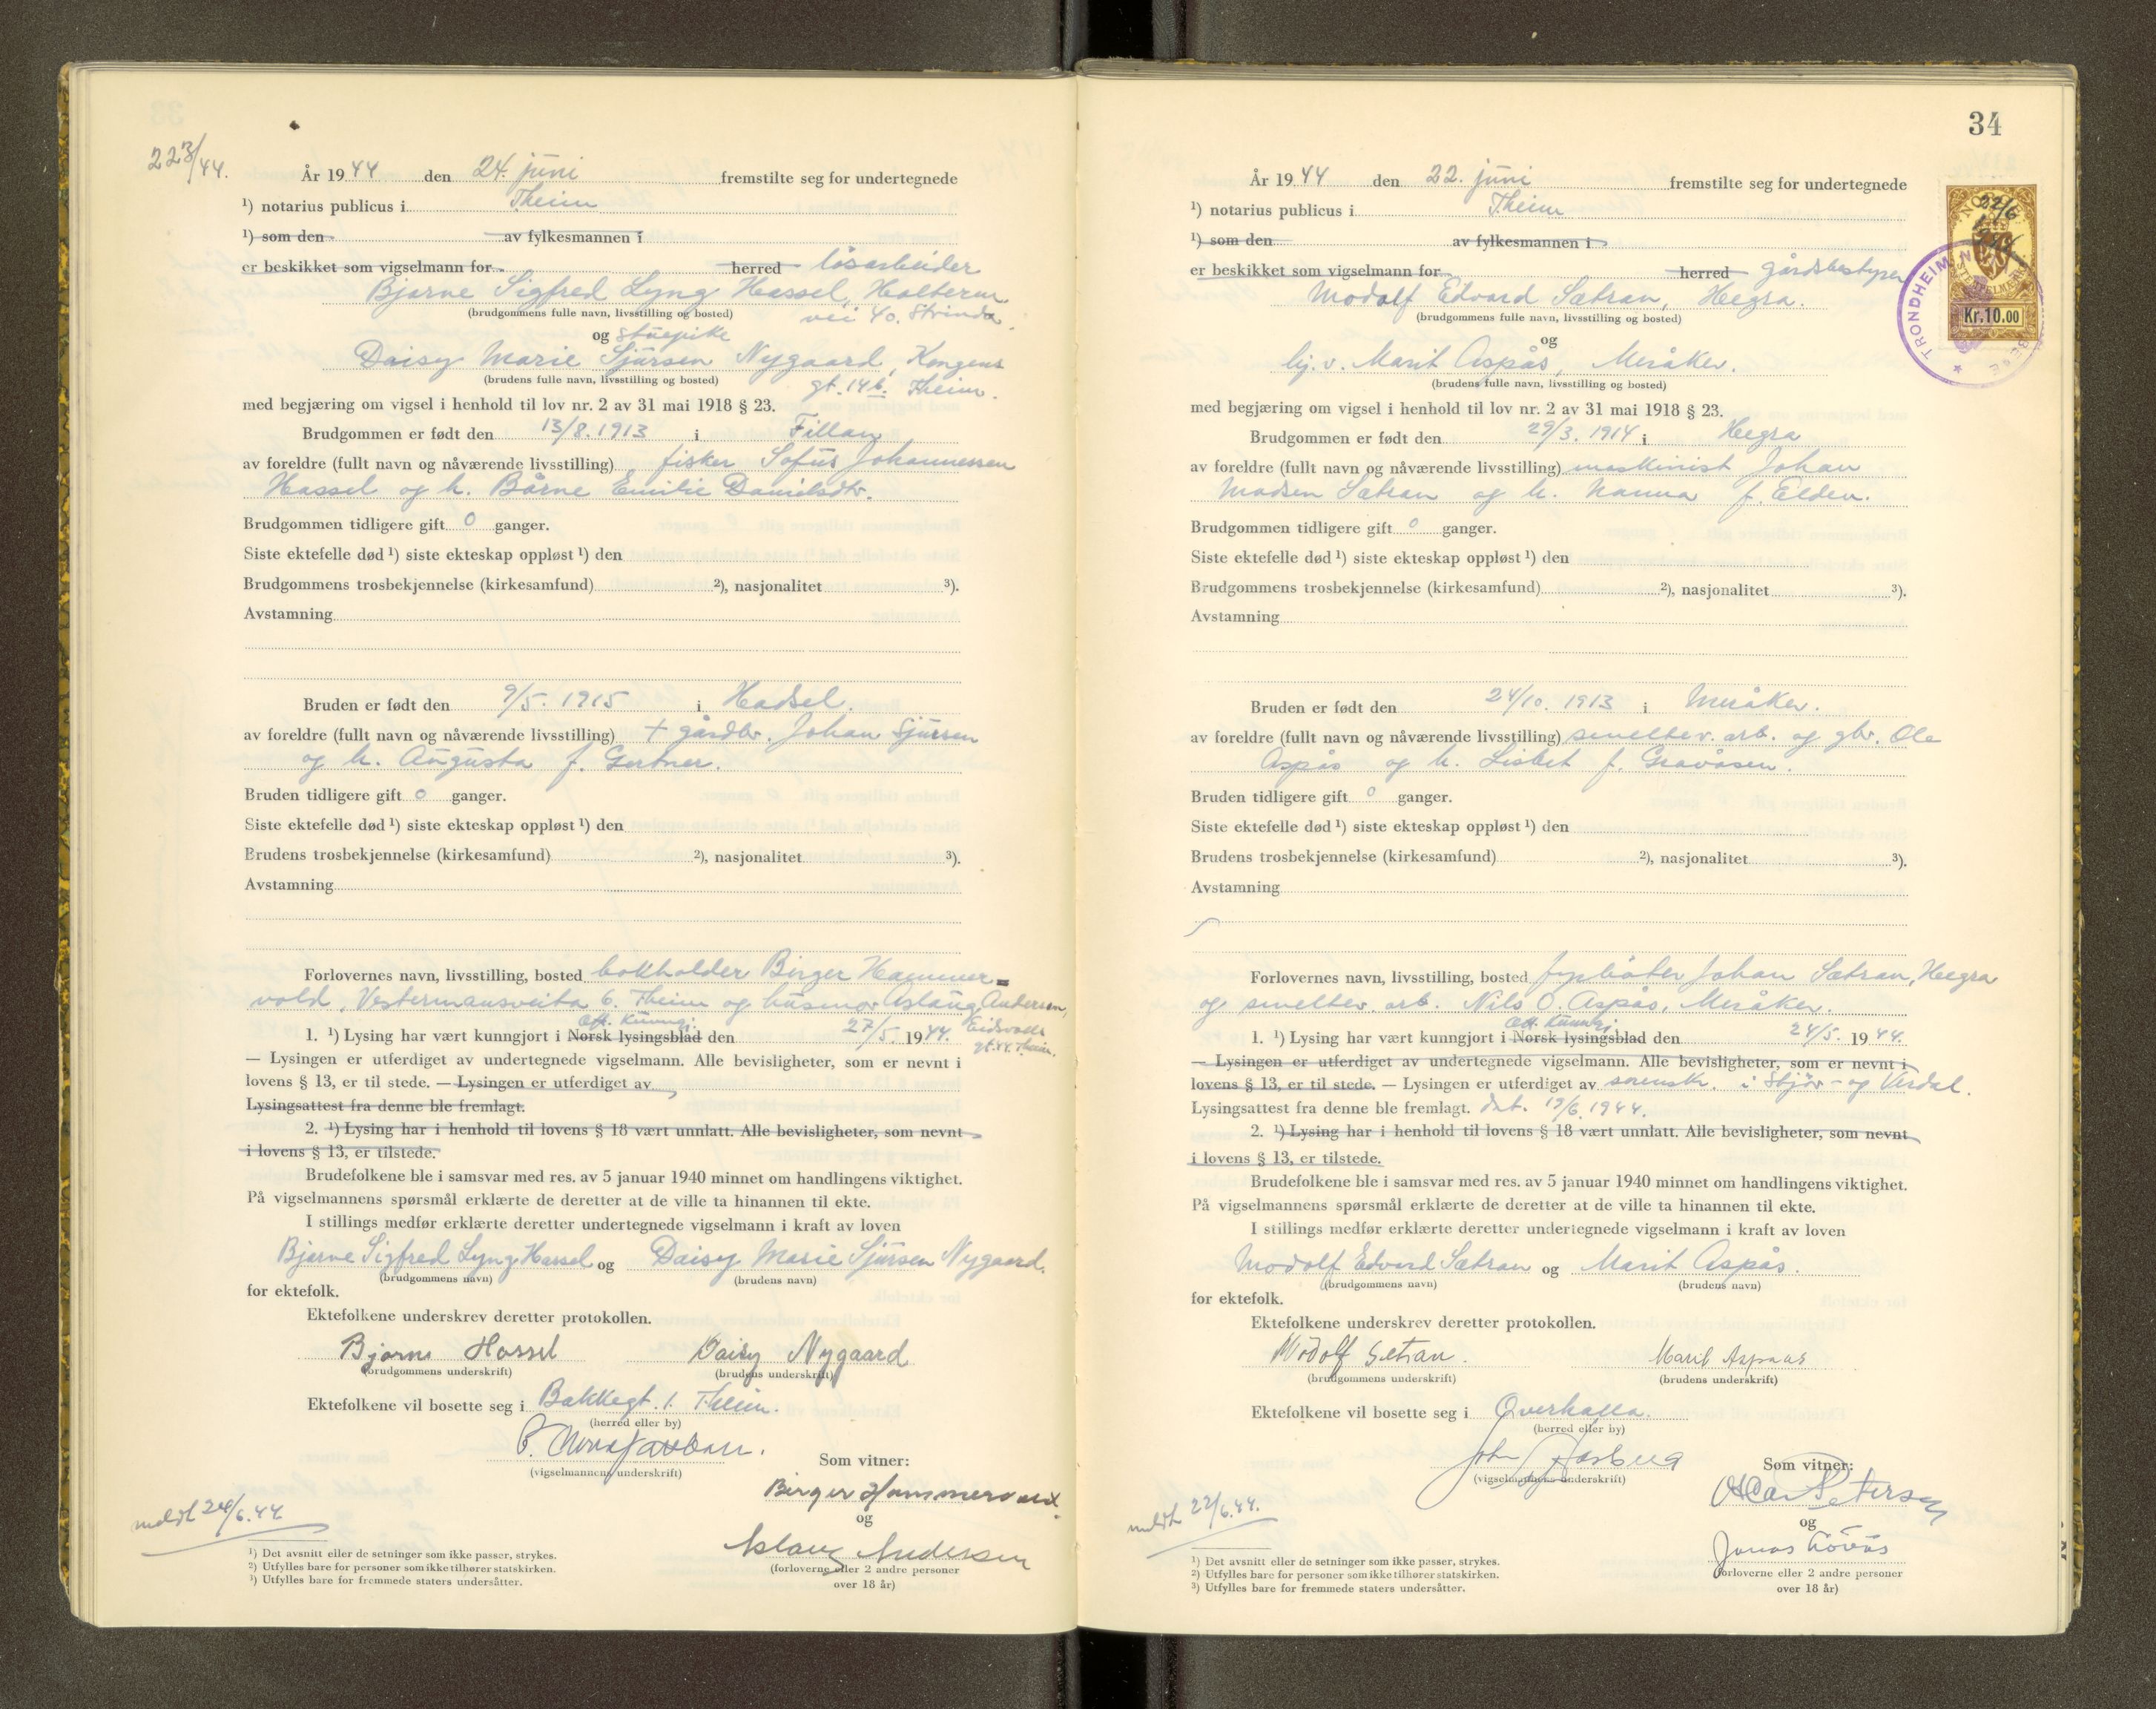 223/44.
År 1944 den 24. juni fremstilte seg for undertegnede
¹) notarius publicus i Theim
¹) som den av fylkesmannen i
er beskikket som vigselmann for herred løsarbeider
Bjarne Sigfred Lyng Hassel, Halterm.
(brudgommens fulle navn, livsstilling og bosted) vei 40. Strinda.
og stuepike
Daisy Marie Sjursen Nygaard, Kongens
(brudens fulle navn, livsstilling og bosted) gt. 14b. Theim.
med begjæring om vigsel i henhold til lov nr. 2 av 31 mai 1918 § 23.
Brudgommen er født den 13/8. 1913 i Fillan
av foreldre (fullt navn og nåværende livsstilling) fisker Sofus Johannessen
Hassel og h. Bårne Emilie Danielsdtr.
Brudgommen tidligere gift 0 ganger.
Siste ektefelle død ¹) siste ekteskap oppløst ¹) den
Brudgommens trosbekjennelse (kirkesamfund) ²), nasjonalitet ³).
Avstamning
Bruden er født den 9/5. 1915 i Hadsel.
av foreldre (fullt navn og nåværende livsstilling) + gårdbr. Johan Sjursen
og h. Augusta f. Gertner.
Bruden tidligere gift 0 ganger.
Siste ektefelle død ¹) siste ekteskap oppløst ¹) den
Brudens trosbekjennelse (kirkesamfund) ²), nasjonalitet ³).
Avstamning
Forlovernes navn, livsstilling, bosted bokholder Birger Hammer-
vold, Vestermannsveita 6. Theim og husmor Aslaug Andersen,
Off. Kunngj. Eidsvolls
1. ¹) Lysing har vært kunngjort i Norsk lysingsblad den 27/5. 1944. gt. 44. Theim.
— Lysingen er utferdiget av undertegnede vigselmann. Alle bevisligheter, som er nevnt i
lovens § 13, er til stede. — Lysingen er utferdiget av
Lysingsattest fra denne ble fremlagt.
2. ¹) Lysing har i henhold til lovens § 18 vært unnlatt. Alle bevisligheter, som nevnt
i lovens § 13, er tilstede.
Brudefolkene ble i samsvar med res. av 5 januar 1940 minnet om handlingens viktighet.
På vigselmannens spørsmål erklærte de deretter at de ville ta hinannen til ekte.
I stillings medfør erklærte deretter undertegnede vigselmann i kraft av loven
Bjarne Sigfred Lyng Hassel og Daisy Marie Sjursen Nygaard.
(brudgommens navn) (brudens navn)
for ektefolk.
Ektefolkene underskrev deretter protokollen.
Bjarne Hassel Daisy Nygaard
(brudgommens underskrift) (brudens underskrift)
Ektefolkene vil bosette seg i Bakkegt. 1. Theim.
(herred eller by)
(vigselmannens underskrift)
Som vitner:
Birger Hammervold.
og
Aslaug Andersen
(forloverne eller 2 andre personer
over 18 år)
meldt 24/6.44
¹) Det avsnitt eller de setninger som ikke passer, strykes.
²) Utfylles bare for personer som ikke tilhører statskirken.
³) Utfylles bare for fremmede staters undersåtter.
34
År 1944 den 22. juni fremstilte seg for undertegnede
¹) notarius publicus i Theim
¹) som den av fylkesmannen i
er beskikket som vigselmann for herred gårdsbestyrer
Modolf Edvard Sætran, Hegra.
(brudgommens fulle navn, livsstilling og bosted)
og
hj. v. Marit Aspås, Meråker.
(brudens fulle navn, livsstilling og bosted)
med begjæring om vigsel i henhold til lov nr. 2 av 31 mai 1918 § 23.
Brudgommen er født den 29/3. 1914 i Hegra
av foreldre (fullt navn og nåværende livsstilling) maskinist Johan
Madsen Sætran og h. Nanna f. Eiden.
Brudgommen tidligere gift 0 ganger.
Siste ektefelle død ¹) siste ekteskap oppløst ¹) den
Brudgommens trosbekjennelse (kirkesamfund) ²), nasjonalitet ³).
Avstamning
Bruden er født den 24/10. 1913 i Meråker.
av foreldre (fullt navn og nåværende livsstilling) smeltev. arb. og gbr. Ole
Aspås og h. Lisbet f. Gravåsen.
Bruden tidligere gift 0 ganger.
Siste ektefelle død ¹) siste ekteskap oppløst ¹) den
Brudens trosbekjennelse (kirkesamfund) ²), nasjonalitet ³).
Avstamning
Forlovernes navn, livsstilling, bosted fyrbøter Johan Sætran, Hegra
og smeltev. arb. Nils O. Aspås, Meråker.
Off. Kunngj.
1. ¹) Lysing har vært kunngjort i Norsk lysingsblad den 24/5. 1944.
— Lysingen er utferdiget av undertegnede vigselmann. Alle bevisligheter, som er nevnt i
lovens § 13, er til stede. — Lysingen er utferdiget av sorenskr. i Stjør- og Verdal.
Lysingsattest fra denne ble fremlagt. dat. 19/6. 1944.
2. ¹) Lysing har i henhold til lovens § 18 vært unnlatt. Alle bevisligheter, som nevnt
i lovens § 13, er tilstede.
Brudefolkene ble i samsvar med res. av 5 januar 1940 minnet om handlingens viktighet.
På vigselmannens spørsmål erklærte de deretter at de ville ta hinannen til ekte.
I stillings medfør erklærte deretter undertegnede vigselmann i kraft av loven
Modolf Edvard Sætran og Marit Aspås.
(brudgommens navn) (brudens navn)
for ektefolk.
Ektefolkene underskrev deretter protokollen.
Modolf Setran. Marit Aspaas
(brudgommens underskrift) (brudens underskrift)
Ektefolkene vil bosette seg i Overhalla.
(herred eller by)
John Aasberg
(vigselmannens underskrift)
Som vitner:
Oscar Petersen
og
Jonas Løvås
(forloverne eller 2 andre personer
over 18 år)
meldt 22/6.44.
¹) Det avsnitt eller de setninger som ikke passer, strykes.
²) Utfylles bare for personer som ikke tilhører statskirken.
³) Utfylles bare for fremmede staters undersåtter.
22/6
Kr. 10.00
TRONDHEIM